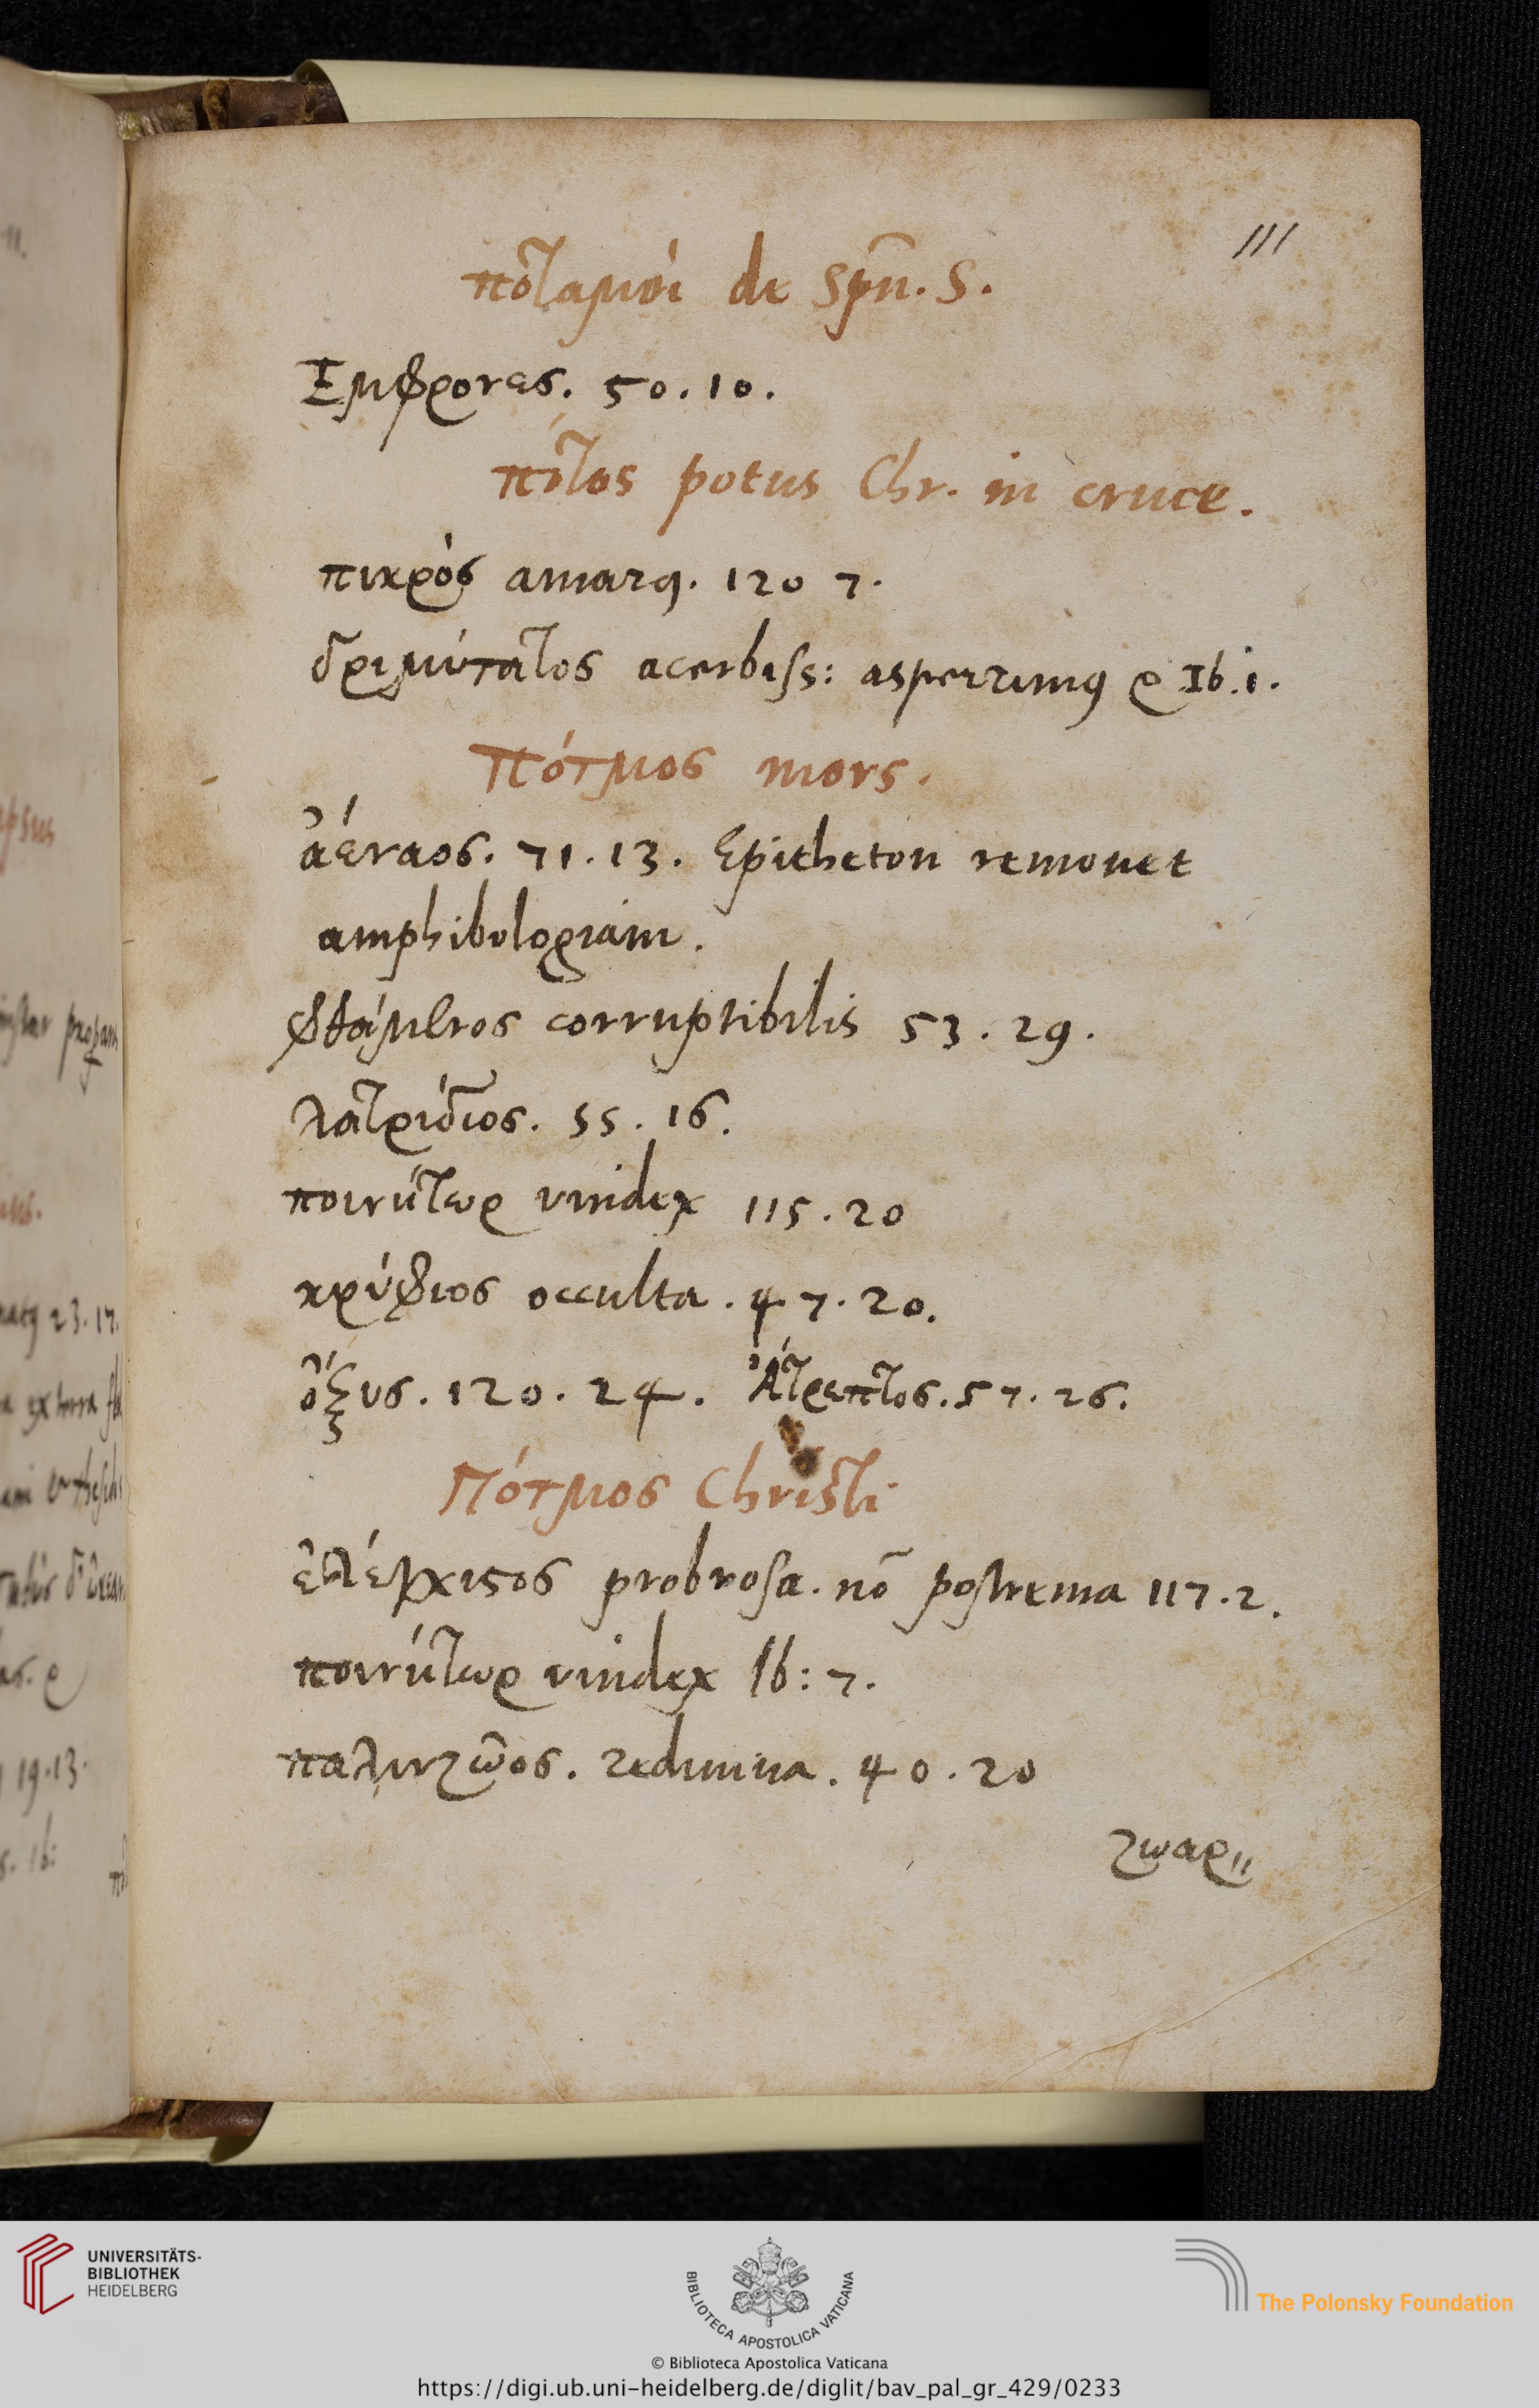 111
ποταμοὶ de Spñ. S.
Ἔμφρονες. 50.10.
πότος potus Chr. in cruce.
πικρός amarꝰ. 120 7.
δριμύτατος acerbiss: asperrimꝰ ϱ Ib.i.
Πότμος mors.
ἀέναος. 71.13. Epitheton remouet
amphibologiam.
φθάμενος corruptibilis 53.29.
λατρίδιος. 55.16.
ποινήτωρ vindex 115.20
κρύφιος occulta. 47.20.
ὄξυς. 120.24. Ἄτρεπτος. 57.26.
Πότμος Christi
ἐλέγχιστος probrosa. nõ postrema 117.2.
ποινήτωρ vindex Ib: 7.
παλινζῶος. rediuiua. 40.20
ζωαρ
apsus
23.17.
19.13.
s. Ib:
UNIVERSITÄTS-
BIBLIOTHEK
HEIDELBERG
BIBLIOTECA APOSTOLICA VATICANA
The Polonsky Foundation
© Biblioteca Apostolica Vaticana
https://digi.ub.uni-heidelberg.de/diglit/bav_pal_gr_429/0233